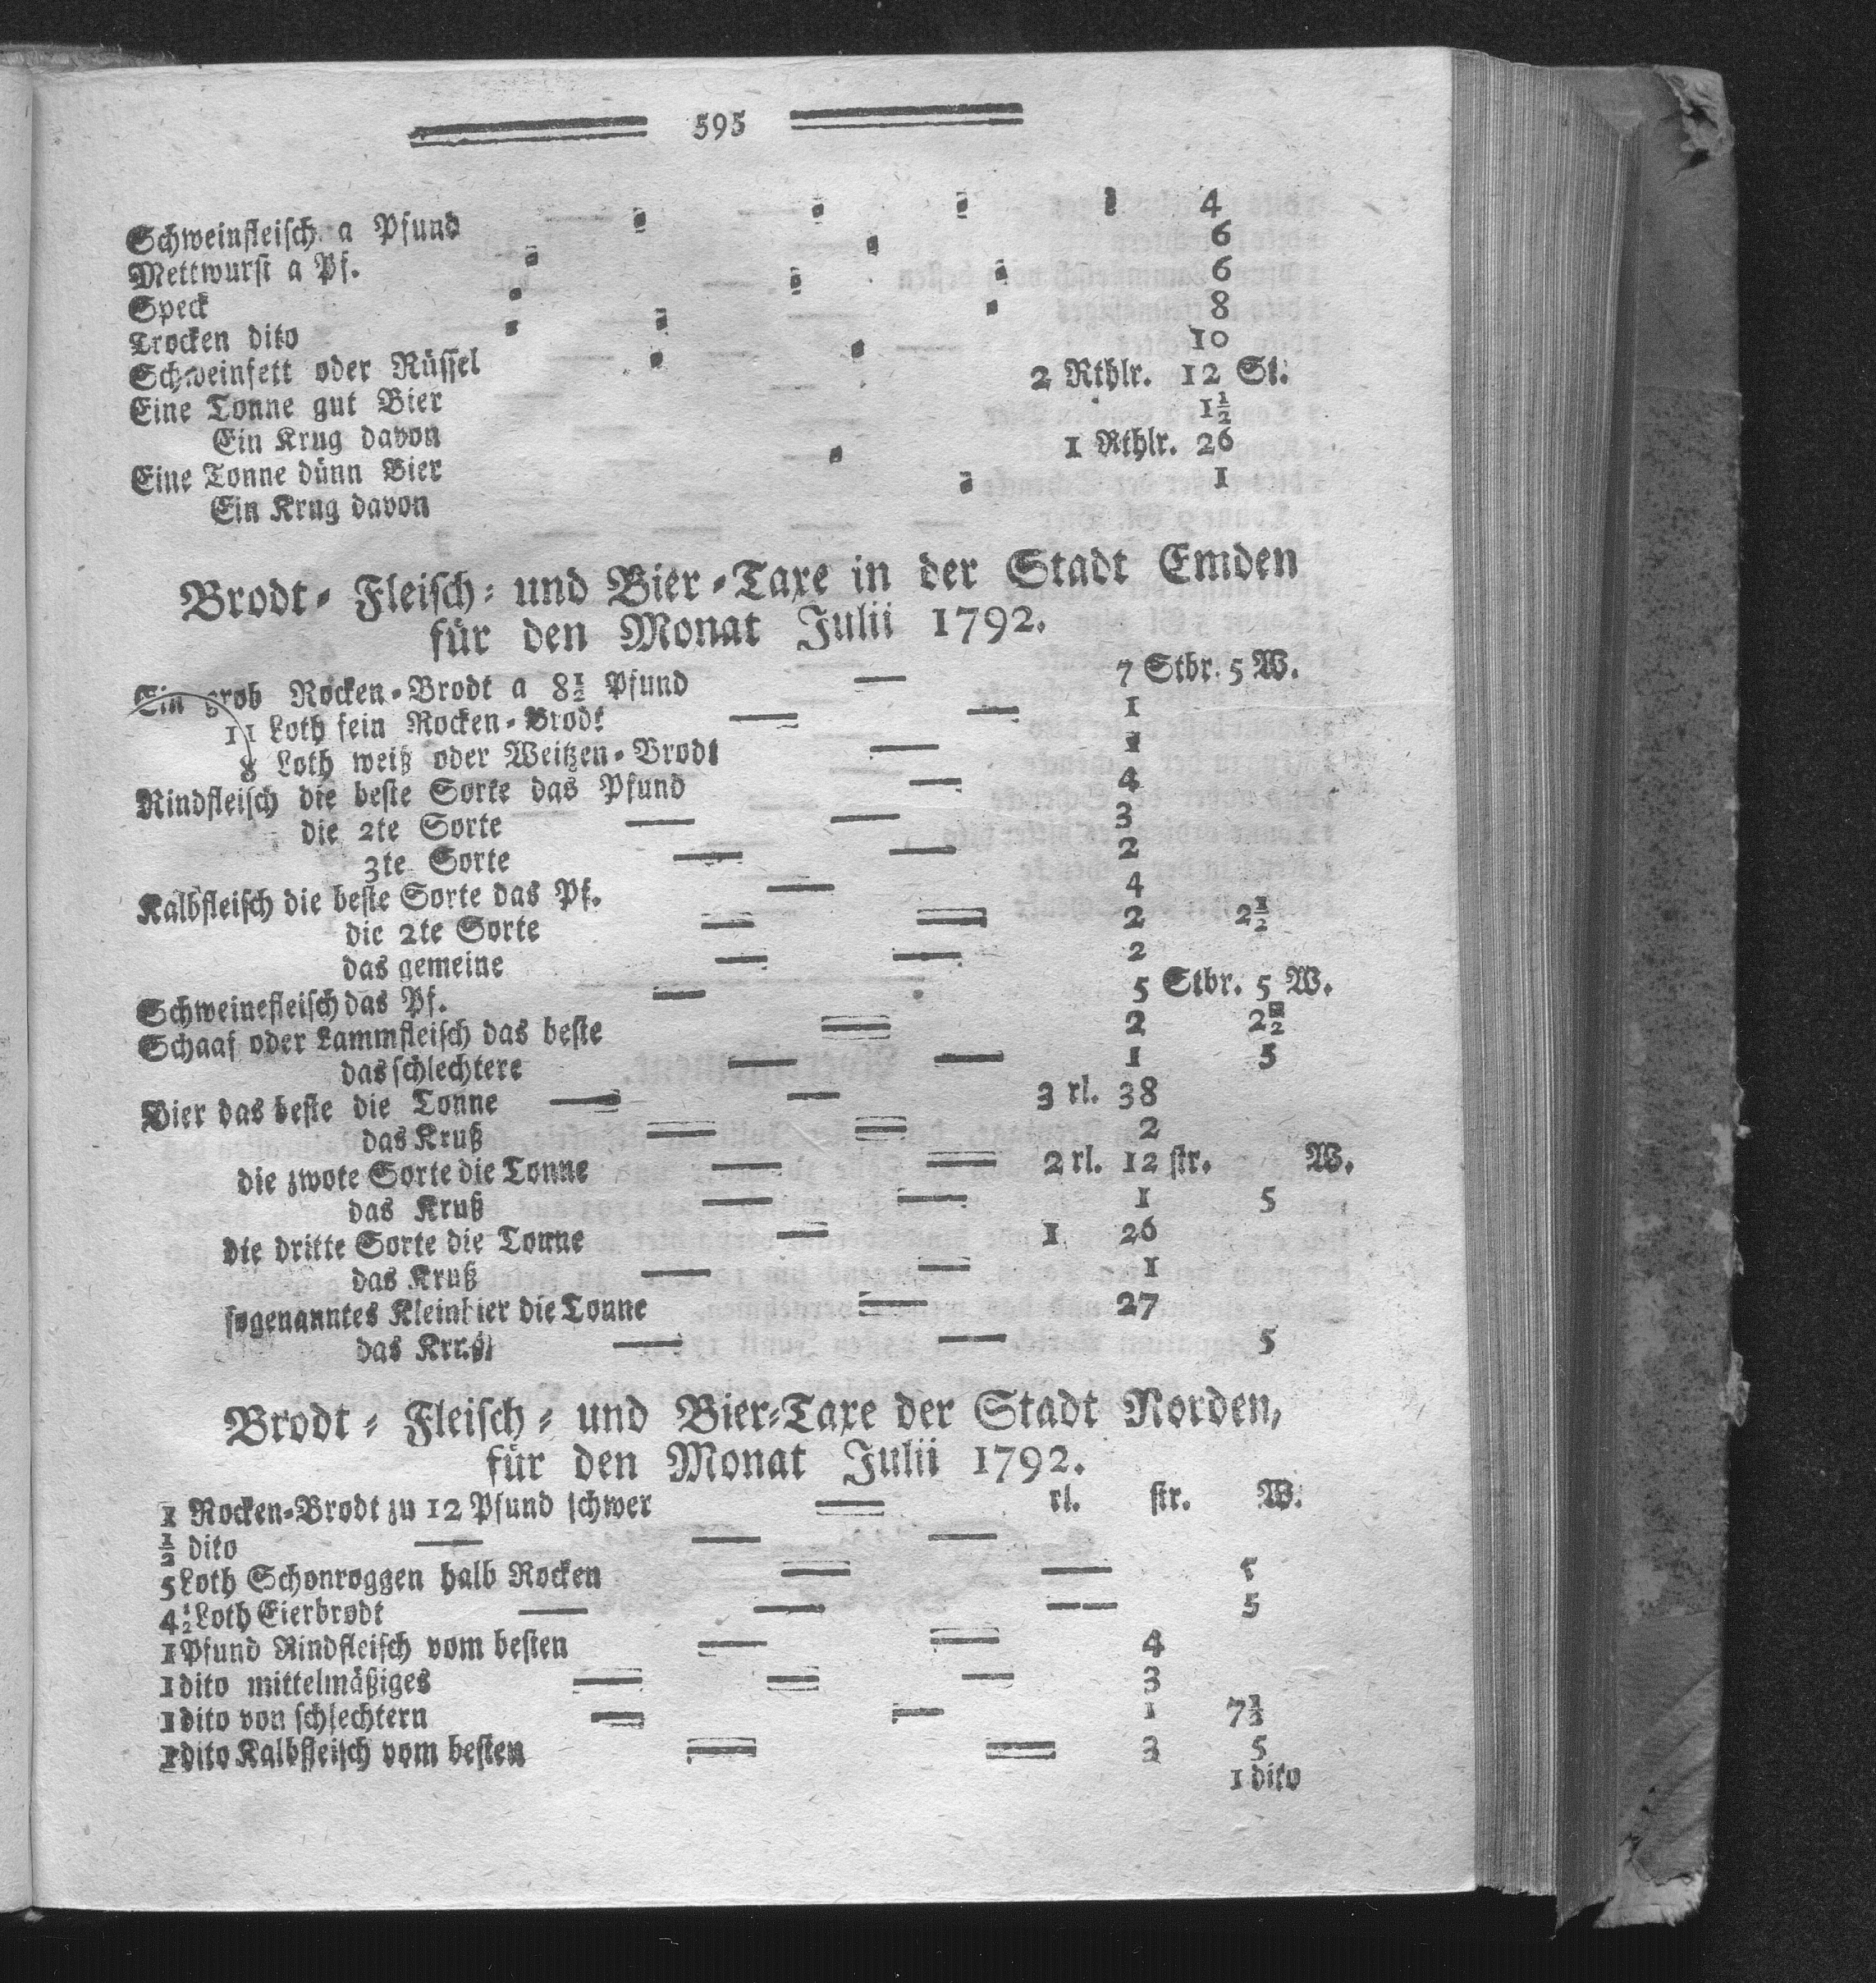 595
Schweinfleisch a Pfund 4
Mettwurst a Pf. 6
Speck 6
Trocken dito 8
Schweinfett oder Rüssel 10
Eine Tonne gut Bier 2 Rthlr. 12 St.
Ein Krug davon 1½
Eine Tonne dünn Bier 1 Rthlr. 26
Ein Krug davon 1
Brodt- Fleisch- und Bier-Taxe in der Stadt Emden
für den Monat Julii 1792.
Ein grob Rocken-Brodt a 8½ Pfund — 7 Stbr. 5 W.
11 Loth fein Rocken-Brodt — — 1
8 Loth weiß oder Weitzen-Brodt — 1
Rindfleisch die beste Sorte das Pfund — 4
die 2te Sorte — — 3
3te Sorte — — 2
Kalbfleisch die beste Sorte das Pf. — 4
die 2te Sorte — — 2 2½
das gemeine — — 2
Schweinefleisch das Pf. — 5 Stbr. 5 W.
Schaaf oder Lammfleisch das beste — 2 2½
das schlechtere — — 1 5
Bier das beste die Tonne — — 3 rl. 38
das Kruß — — 2
die zwote Sorte die Tonne — — 2 rl. 12 str. W.
das Kruß — — 1 5
die dritte Sorte die Tonne — 1 26
das Kruß — — 1
sogenanntes Kleinbier die Tonne — 27
das Kruß — — 5
Brodt- Fleisch- und Bier-Taxe der Stadt Norden,
für den Monat Julii 1792.
1 Rocken-Brodt zu 12 Pfund schwer — rl. str. W.
½ dito — — —
5 Loth Schonroggen halb Rocken — — 5
4½ Loth Eierbrodt — — — 5
1 Pfund Rindfleisch vom besten — — 4
1 dito mittelmäßiges — — — 3
1 dito von schlechtern — — 1 7½
1 dito Kalbfleisch vom besten — — 3 5
1 dito